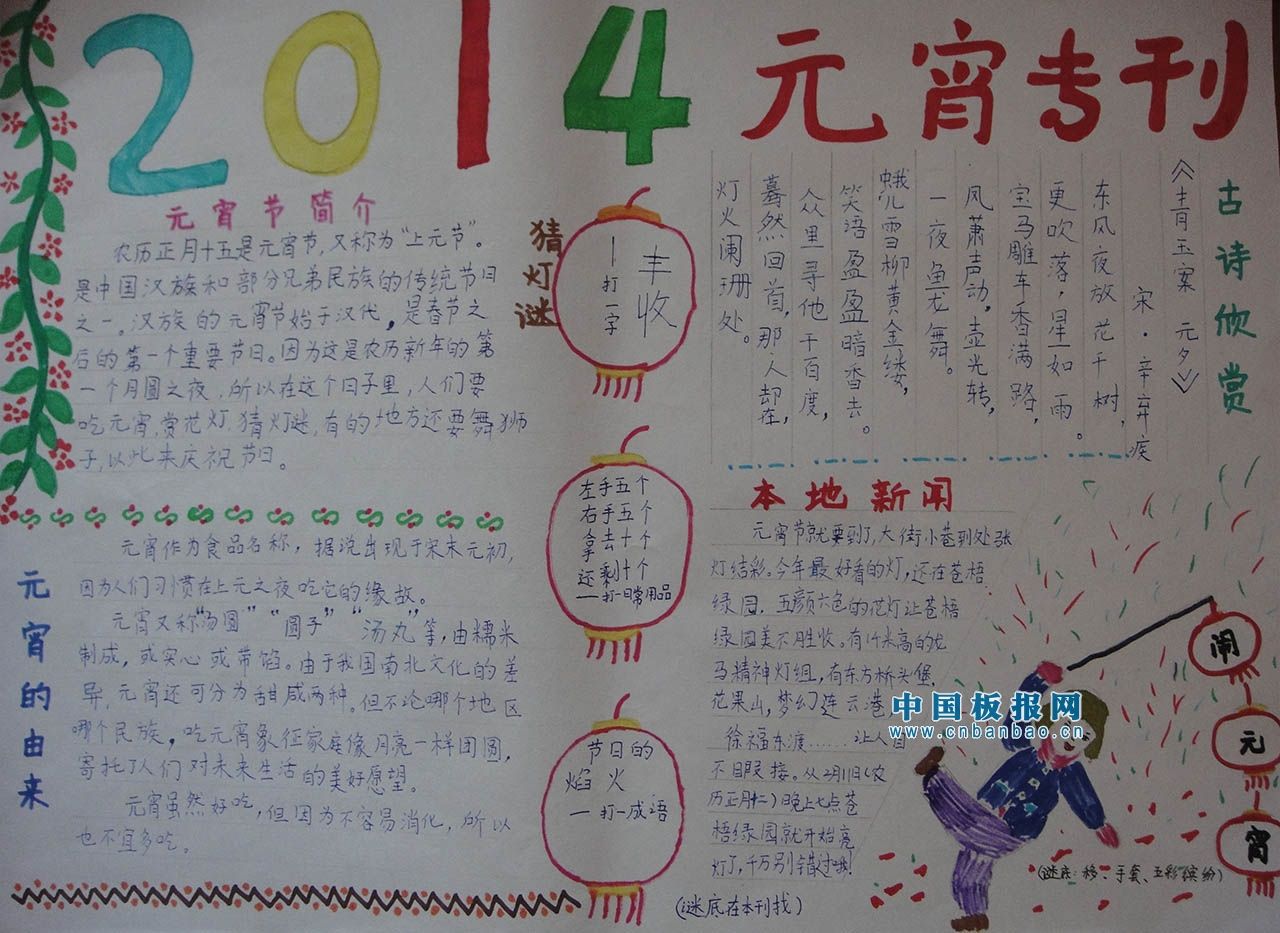 2014
元宵专刊
元宵节简介
农历正月十五是元宵节,又称为“上元节”。
是中国汉族和部分兄弟民族的传统节日
之一。汉族的元宵节始于汉代,是春节之
后的第一个重要节日。因为这是农历新年的第
一个月圆之夜,所以在这个日子里,人们要
吃元宵,赏花灯,猜灯谜,有的地方还要舞狮
子,以此来庆祝节日。
元宵的由来
元宵作为食品名称,据说出现于宋末元初,
因为人们习惯在上元之夜吃它的缘故。
元宵又称“汤圆”“圆子”“汤丸”等,由糯米
制成,或实心或带馅。由于我国南北文化的差
异,元宵还可分为甜咸两种。但不论哪个地区
哪个民族,吃元宵象征家庭像月亮一样团圆,
寄托了人们对未来生活的美好愿望。
元宵虽然好吃,但因为不容易消化,所以
也不宜多吃。
猜灯谜
丰收
—打一字
左手五个
右手五个
拿去十个
还剩十个
—打一日常用品
节日的
焰火
—打一成语
(谜底在本刊找)
古诗欣赏
《青玉案 元夕》
宋·辛弃疾
东风夜放花千树,
更吹落,星如雨。
宝马雕车香满路,
凤萧声动,壶光转,
一夜鱼龙舞。
蛾儿雪柳黄金缕,
笑语盈盈暗香去。
众里寻他千百度,
蓦然回首,那人却在,
灯火阑珊处。
本地新闻
元宵节就要到了,大街小巷到处张
灯结彩。今年最好看的灯,还在苍梧
绿园,五颜六色的花灯让苍梧
绿园美不胜收。有17米高的龙
马精神灯组,有东方桥头堡,
花果山,梦幻连云港
徐福东渡……让人目
不暇接。从2月11日(农
历正月十二)晚上七点苍
梧绿园就开始亮
灯了,千万别错过哦!
闹
元
宵
(谜底:移、手套、五彩缤纷)
中国板报网
www.cnbanbao.cn